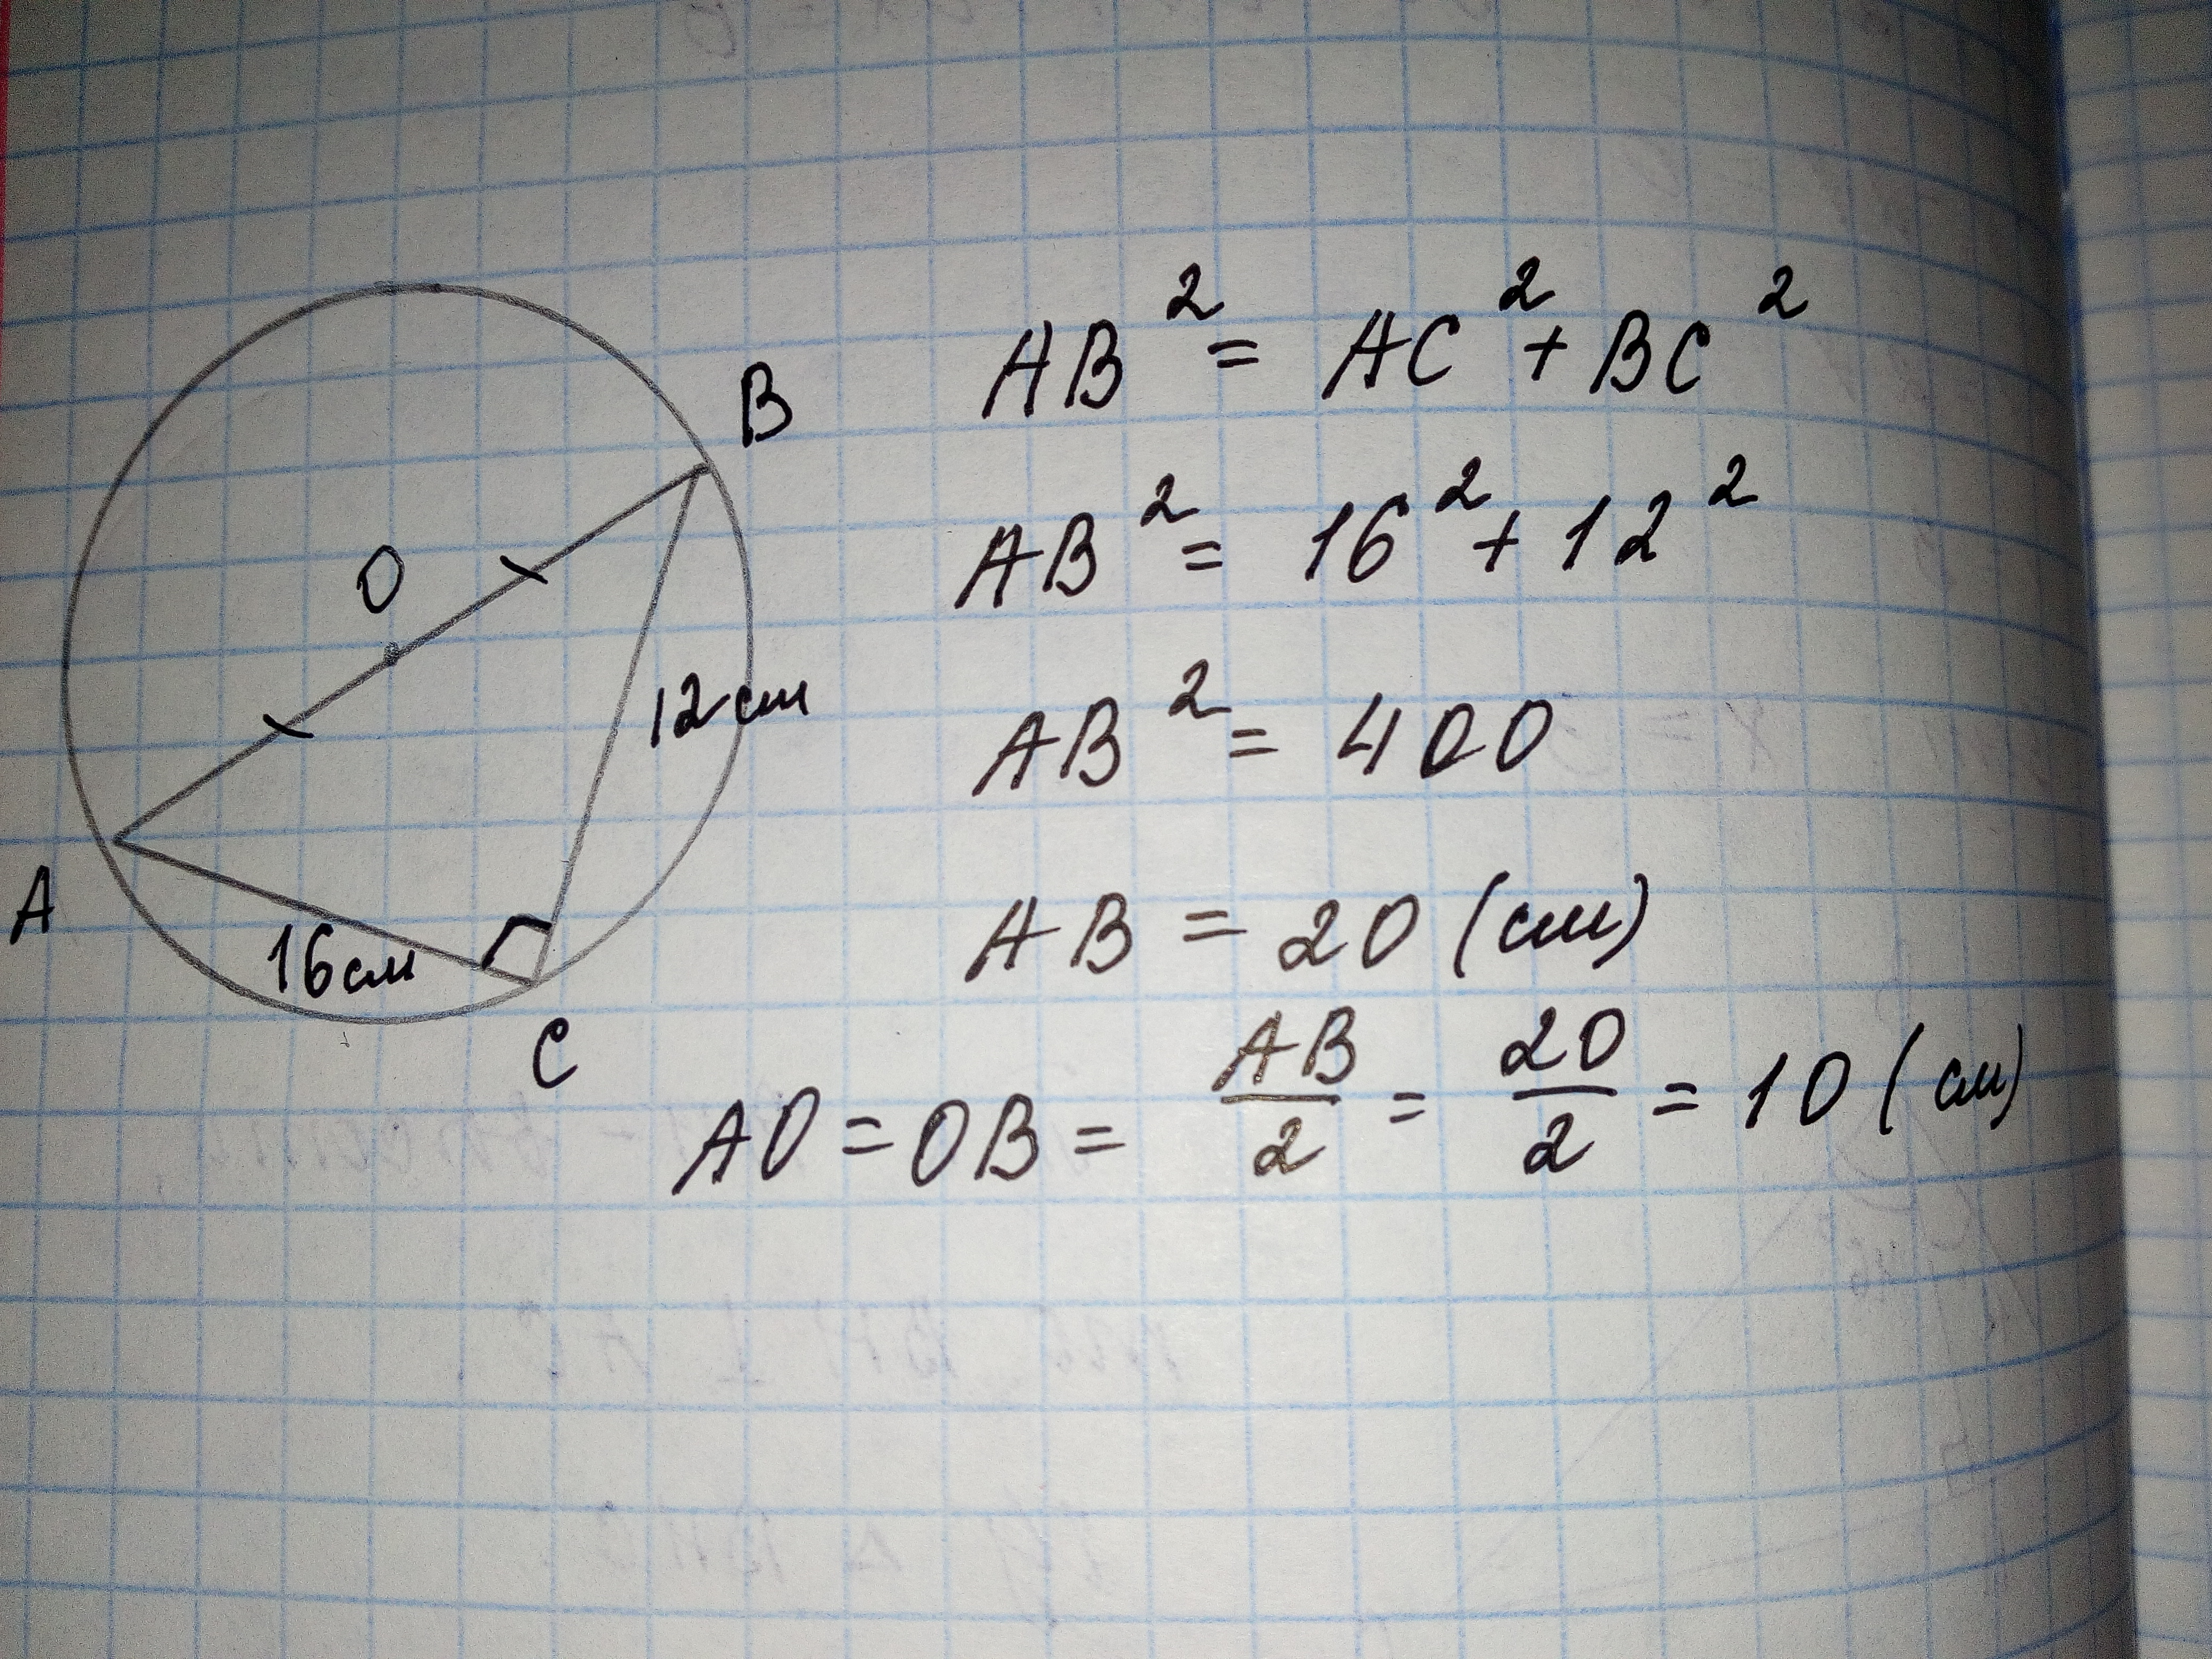 B
O
12 см
A
16 см
C
AB² = AC² + BC²
AB² = 16² + 12²
AB² = 400
AB = 20 (см)
AO = OB = AB/2 = 20/2 = 10 (см)